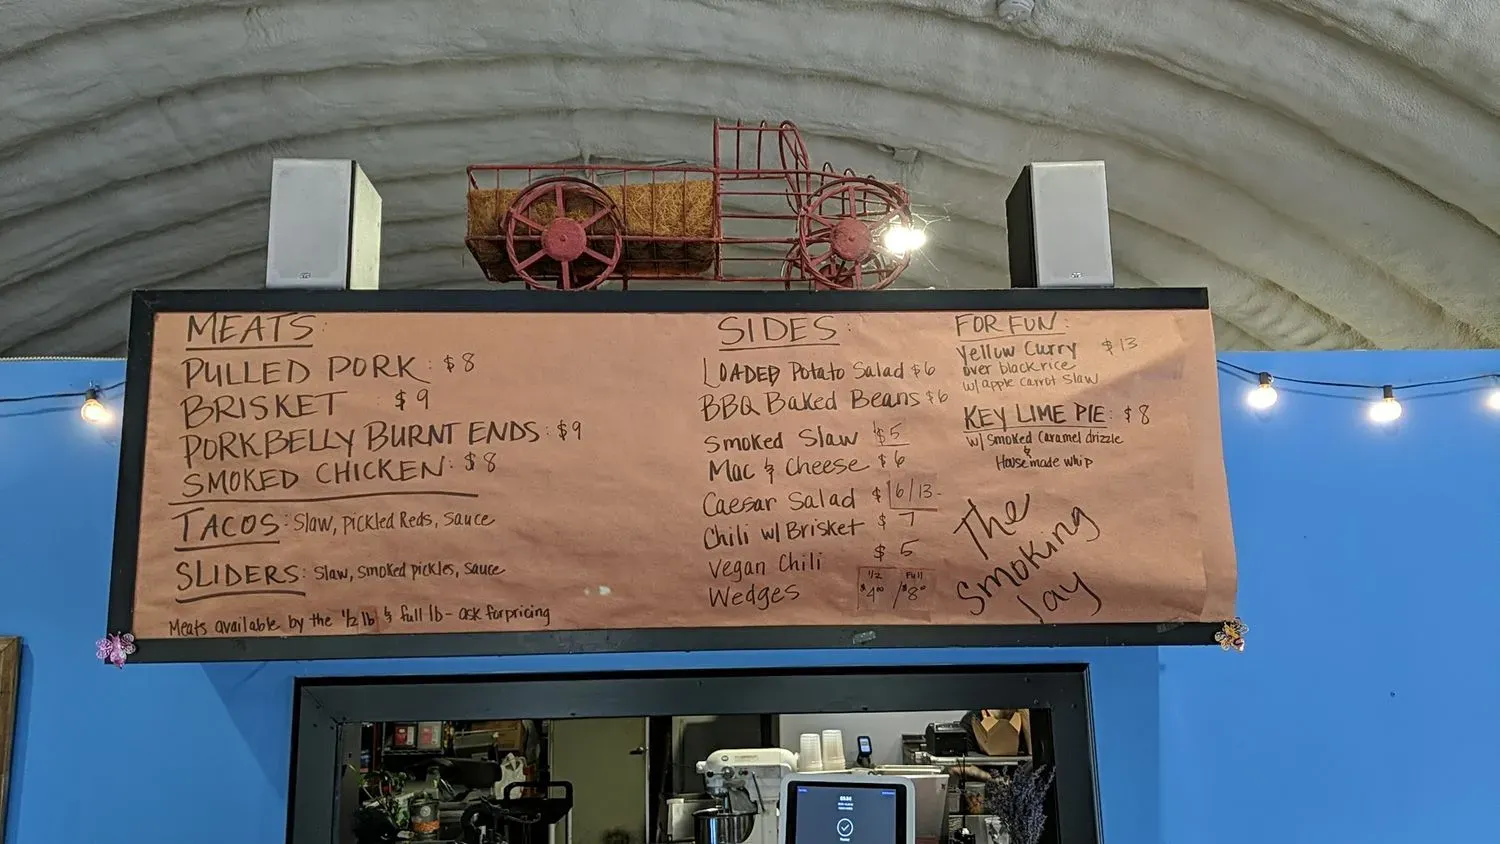 MEATS:
PULLED PORK: $8
BRISKET $9
PORKBELLY BURNT ENDS: $9
SMOKED CHICKEN: $8
TACOS: Slaw, pickled Reds, Sauce
SLIDERS: Slaw, smoked pickles, sauce
Meats available by the 1/2 lb & full lb - ask for pricing
SIDES:
LOADED Potato Salad $6
BBQ Baked Beans $6
Smoked Slaw $5
Mac & Cheese $6
Caesar Salad $6/13-
Chili w/ Brisket $7
Vegan Chili $5
Wedges 1/2 $4.00 / Full $8.0
FOR FUN:
Yellow Curry $13
over black rice
w/ apple carrot slaw
KEY LIME PIE: $8
w/ Smoked Caramel drizzle
&
Housemade whip
The
Smoking
Jay